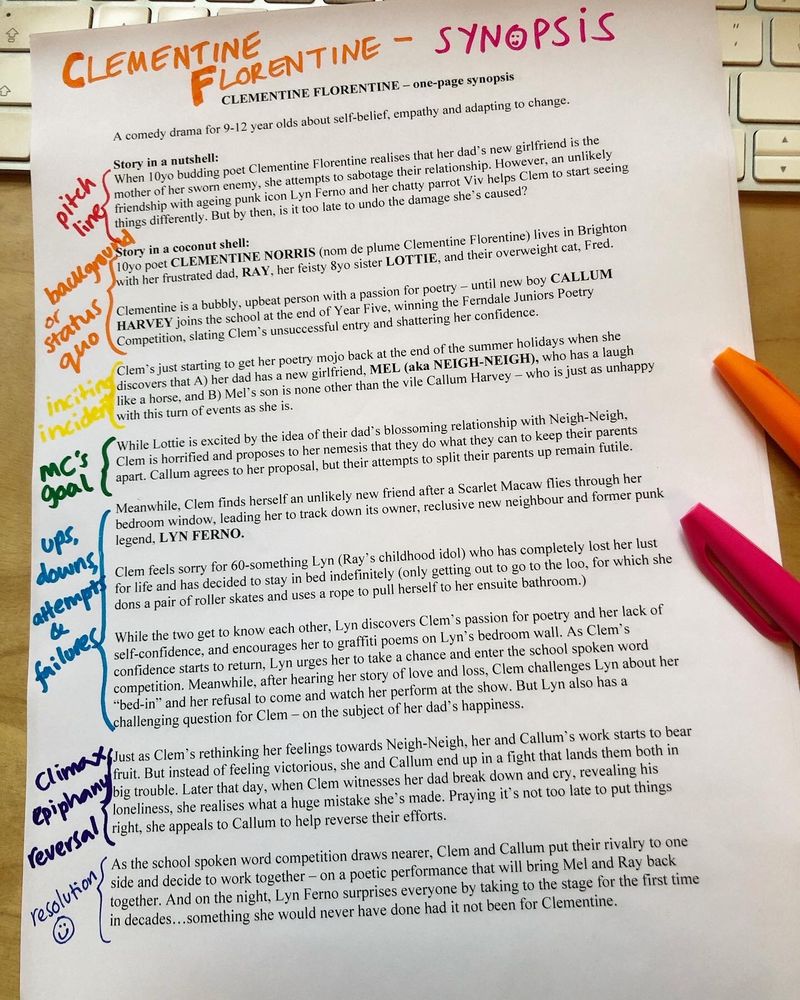 CLEMENTINE FLORENTINE - SYNOPSIS
CLEMENTINE FLORENTINE – one-page synopsis
A comedy drama for 9-12 year olds about self-belief, empathy and adapting to change.
pitch line
Story in a nutshell:
When 10yo budding poet Clementine Florentine realises that her dad's new girlfriend is the
mother of her sworn enemy, she attempts to sabotage their relationship. However, an unlikely
friendship with ageing punk icon Lyn Ferno and her chatty parrot Viv helps Clem to start seeing
things differently. But by then, is it too late to undo the damage she's caused?
background or status quo
Story in a coconut shell:
10yo poet CLEMENTINE NORRIS (nom de plume Clementine Florentine) lives in Brighton
with her frustrated dad, RAY, her feisty 8yo sister LOTTIE, and their overweight cat, Fred.
Clementine is a bubbly, upbeat person with a passion for poetry – until new boy CALLUM
HARVEY joins the school at the end of Year Five, winning the Ferndale Juniors Poetry
Competition, slating Clem's unsuccessful entry and shattering her confidence.
inciting incident
Clem's just starting to get her poetry mojo back at the end of the summer holidays when she
discovers that A) her dad has a new girlfriend, MEL (aka NEIGH-NEIGH), who has a laugh
like a horse, and B) Mel's son is none other than the vile Callum Harvey – who is just as unhappy
with this turn of events as she is.
MC's goal
While Lottie is excited by the idea of their dad's blossoming relationship with Neigh-Neigh,
Clem is horrified and proposes to her nemesis that they do what they can to keep their parents
apart. Callum agrees to her proposal, but their attempts to split their parents up remain futile.
ups, downs, attempts & failures
Meanwhile, Clem finds herself an unlikely new friend after a Scarlet Macaw flies through her
bedroom window, leading her to track down its owner, reclusive new neighbour and former punk
legend, LYN FERNO.
Clem feels sorry for 60-something Lyn (Ray's childhood idol) who has completely lost her lust
for life and has decided to stay in bed indefinitely (only getting out to go to the loo, for which she
dons a pair of roller skates and uses a rope to pull herself to her ensuite bathroom.)
While the two get to know each other, Lyn discovers Clem's passion for poetry and her lack of
self-confidence, and encourages her to graffiti poems on Lyn's bedroom wall. As Clem's
confidence starts to return, Lyn urges her to take a chance and enter the school spoken word
competition. Meanwhile, after hearing her story of love and loss, Clem challenges Lyn about her
“bed-in” and her refusal to come and watch her perform at the show. But Lyn also has a
challenging question for Clem – on the subject of her dad's happiness.
Climax epiphany reversal
Just as Clem's rethinking her feelings towards Neigh-Neigh, her and Callum's work starts to bear
fruit. But instead of feeling victorious, she and Callum end up in a fight that lands them both in
big trouble. Later that day, when Clem witnesses her dad break down and cry, revealing his
loneliness, she realises what a huge mistake she's made. Praying it's not too late to put things
right, she appeals to Callum to help reverse their efforts.
resolution
As the school spoken word competition draws nearer, Clem and Callum put their rivalry to one
side and decide to work together – on a poetic performance that will bring Mel and Ray back
together. And on the night, Lyn Ferno surprises everyone by taking to the stage for the first time
in decades…something she would never have done had it not been for Clementine.